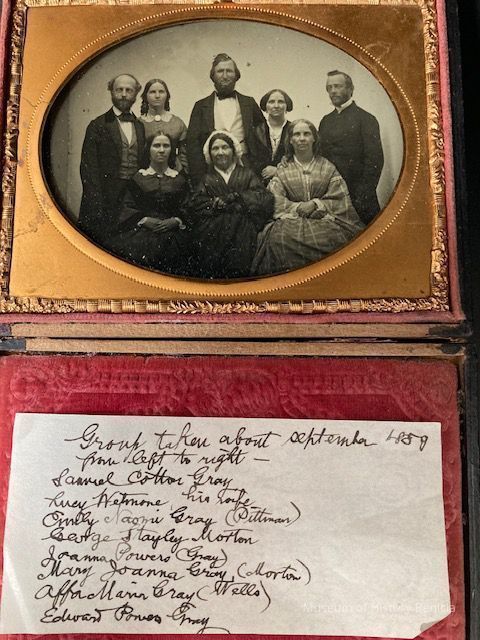 Group taken about september 1859
from left to right –
Samuel Cotton Gray
Lucy Wetmore his wife
Emily Naomi Gray (Pittman)
George Stayley Morton
Joanna Powers (Gray)
Mary Joanna Gray (Morton)
Affa Maria Gray (Wells)
Edward Powers Gray
Museum of History Benicia